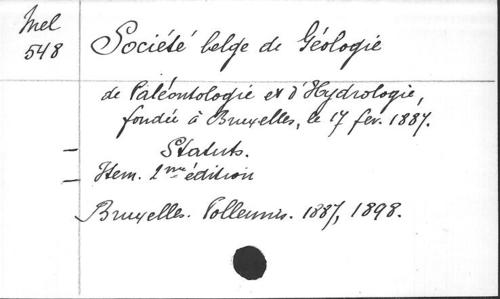 Mel
548
Société belge de Géologie
de Paléontologie et d'Hydrologie,
fondée à Bruxelles, le 17 fev. 1887.
— Statuts.
— Item. 2me édition
Bruxelles. Polleunis. 1887, 1898.